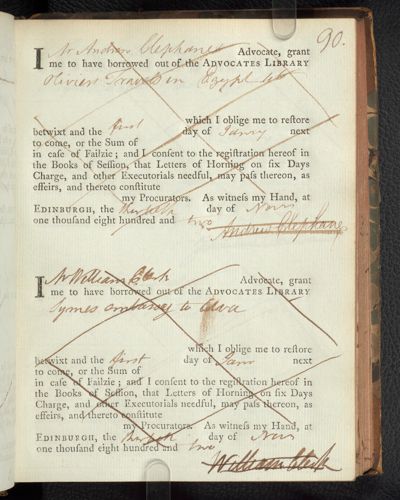 90.
I Mr Andrew Clephane Advocate, grant
me to have borrowed out of the ADVOCATES LIBRARY
Oliviers Travels in Egypt
which I oblige me to reſtore
betwixt and the first day of Janry next
to come, or the Sum of
in caſe of Failzie; and I conſent to the regiſtration hereof in
the Books of Seſſion, that Letters of Horning on ſix Days
Charge, and other Executorials needful, may paſs thereon, as
effeirs, and thereto conſtitute
my Procurators. As witneſs my Hand, at
EDINBURGH, the day of Novr
one thouſand eight hundred and two
Andrew Clephane
I Mr William Clerk Advocate, grant
me to have borrowed out of the ADVOCATES LIBRARY
Symes embassy to Ava
which I oblige me to reſtore
betwixt and the first day of Janr next
to come, or the Sum of
in caſe of Failzie; and I conſent to the regiſtration hereof in
the Books of Seſſion, that Letters of Horning on ſix Days
Charge, and other Executorials needful, may paſs thereon, as
effeirs, and thereto conſtitute
my Procurators. As witneſs my Hand, at
EDINBURGH, the day of Novr
one thouſand eight hundred and two
William Clerk